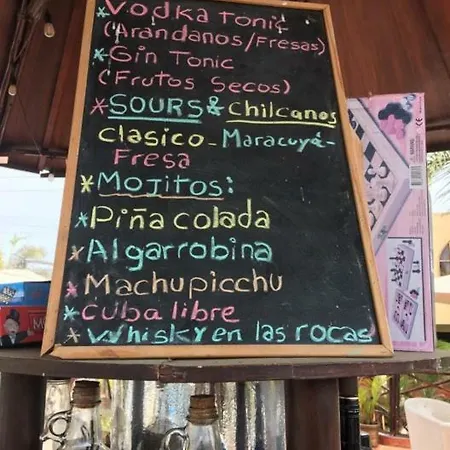 *Vodka Tonic
(Arandanos/Fresas)
*Gin Tonic
(Frutos Secos)
*SOURS & Chilcanos
Clasico - Maracuyá -
Fresa
*Mojitos:
*Piña colada
*Algarrobina
*Machupicchu
*Cuba libre
*Whisky en las rocas